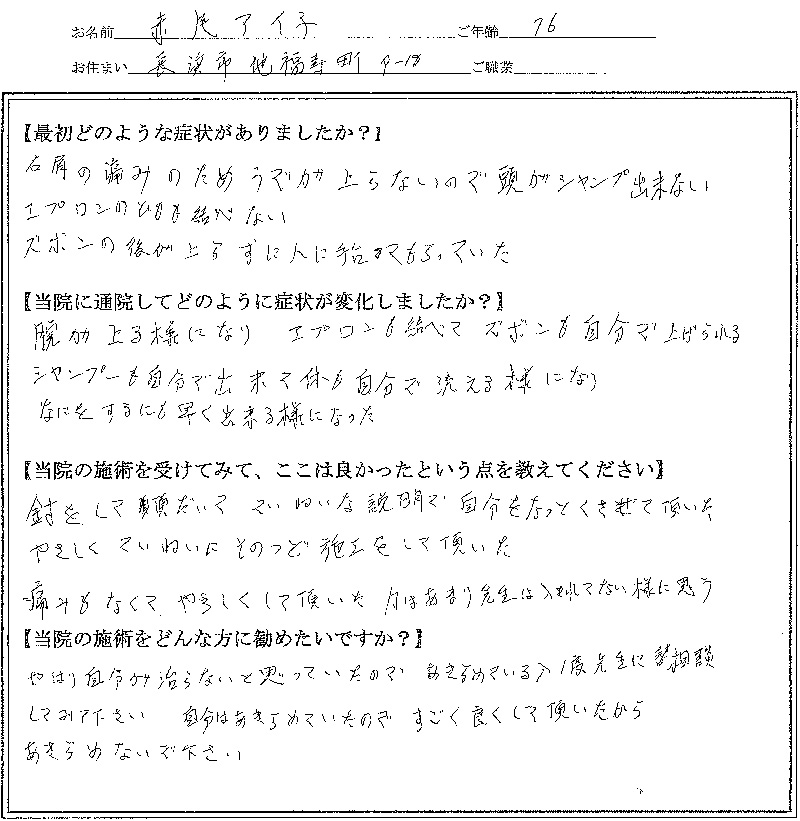 お名前 赤尾アイ子 ご年齢 76
お住まい 長浜市地福寺町9-18 ご職業
【最初どのような症状がありましたか?】
右肩の痛みのためうでが上らないので頭がシャンプ出来ない
エプロンのひもも結べない
ズボンの後が上らずに人に手伝てもらっていた
【当院に通院してどのように症状が変化しましたか?】
腕が上る様になり エプロンも結べて ズボンも自分で上げられる
シャンプーも自分で出来て体も自分で洗える様になり
なにをするにも早く出来る様になった
【当院の施術を受けてみて、ここは良かったという点を教えてください】
針をして頂だいて ていねいな説明で自分をなっとくさせて頂いた
やさしくていねいにそのつど施工をして頂いた
痛みもなくて やさしくして頂いた 力はあまり先生は入れてない様に思う
【当院の施術をどんな方に勧めたいですか?】
やはり自分が治らないと思っていたので あきらめている人1度先生に相談
してみて下さい 自分はあきらめていたので すごく良くして頂いたから
あきらめないで下さい